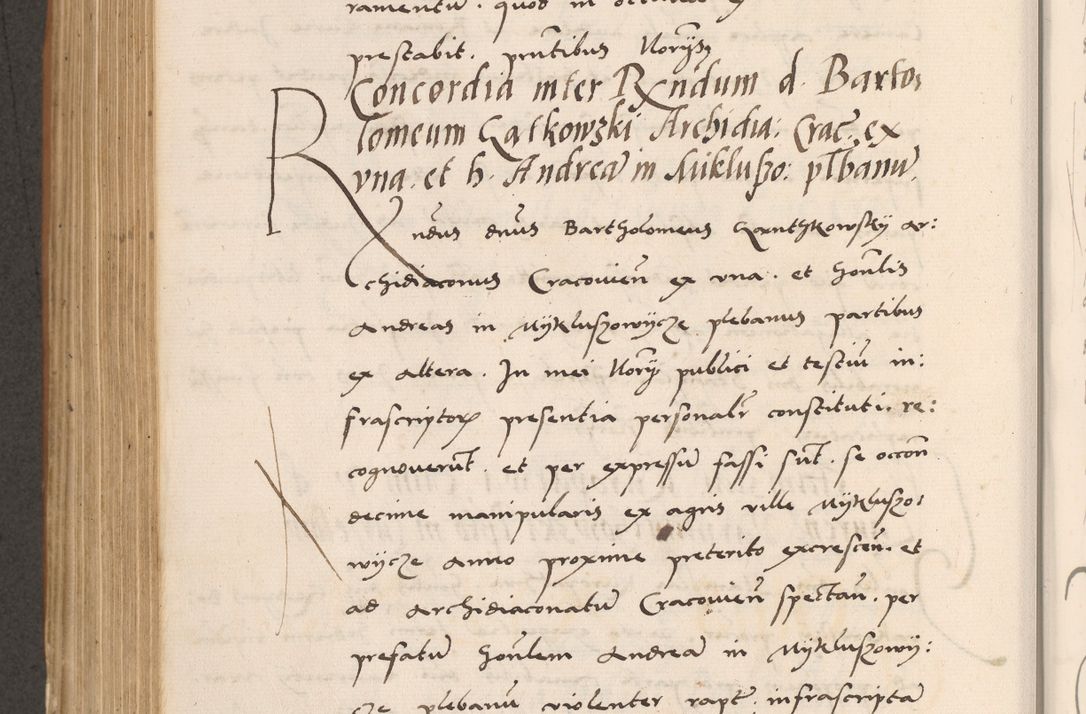 ramentũ. quod in
prestabit. pñtibus Norijs
Concordia inter Rxndum d. Barto,
lomeum Gątkowski Archidia: Crac̃. ex
vna. et h. Andreã in Mikluszo: płbanũ.
Rndus dñus Bartholomeus Ganthkowskÿ ar:
chidiaconus Cracovieñ ex vna. et honĩlis
Andreas in Mÿkluszowÿcze plebanus partibus
ex altera. In mei Norÿ publici et testiũ in:
frascriptor̃ presentia personalr̃ constituti. re:
cognoverũt. et per expressũ fassi sũt. se occoñ
decime manipularis ex agris ville Mÿkluszo:
wÿcze anno proxime preterito excresceñ. et
ad archidiaconatũ Cracovieñ spectañ. per
prefatũ honĩlem Andreã in Mÿkluszowÿ:
cze plebanũ violenter rapt̃. infrascriptã